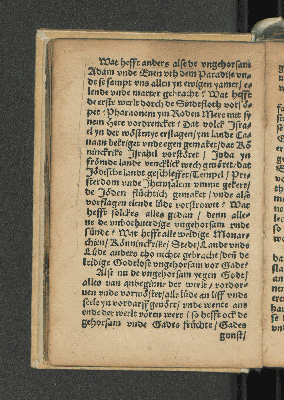 Wat hefft anders alse de ungehorsam
Adam unde Euen uth dem Paradise un-
de se sampt uns allen yn ewigen yamer / e-
lende unde marter gebracht? Wat hefft
de erste werlt dorch de Sündefloth vorsö-
pet: Pharaonem ym Roden Mere mit sy-
nem Here vordrencket: Dat volck Israel
yn der wösteny erslagen / ym lande Ca-
naan bekriget unde egen gemaket / dat Kö-
ninckrike Israhel vorstöret / Juda yn
frömde lande venclick wech gevöret / dat
Jödesche lant geschleyffet / Tempel / Pre-
sterdom unde Jherusalem umme gekert /
de Jöden flüchtich gemaket / unde alse
vorslagen elende lüde vorstrowet? Wat
hefft solckes alles gedan / denn alle-
ne de unbothverdige ungehorsam unde
sünde? Wat hefft alle weldige Monar-
chien / Könninckrike / Stede / Lande unde
Lüde anders tho nichte gebracht / den de
leidige Godtlose ungehorsam vor Gade?
Alse nu de ungehorsam yegen Godt
alles van anbeginne der werlt / vordor-
uen unde vorwöstet / alle lüde an liff unde
seele yn vordarff gevöret / unde wente ans
ende der werlt vören wert / so hefft ock de
gehorsam unde Gades früchte / Gades
gunst /